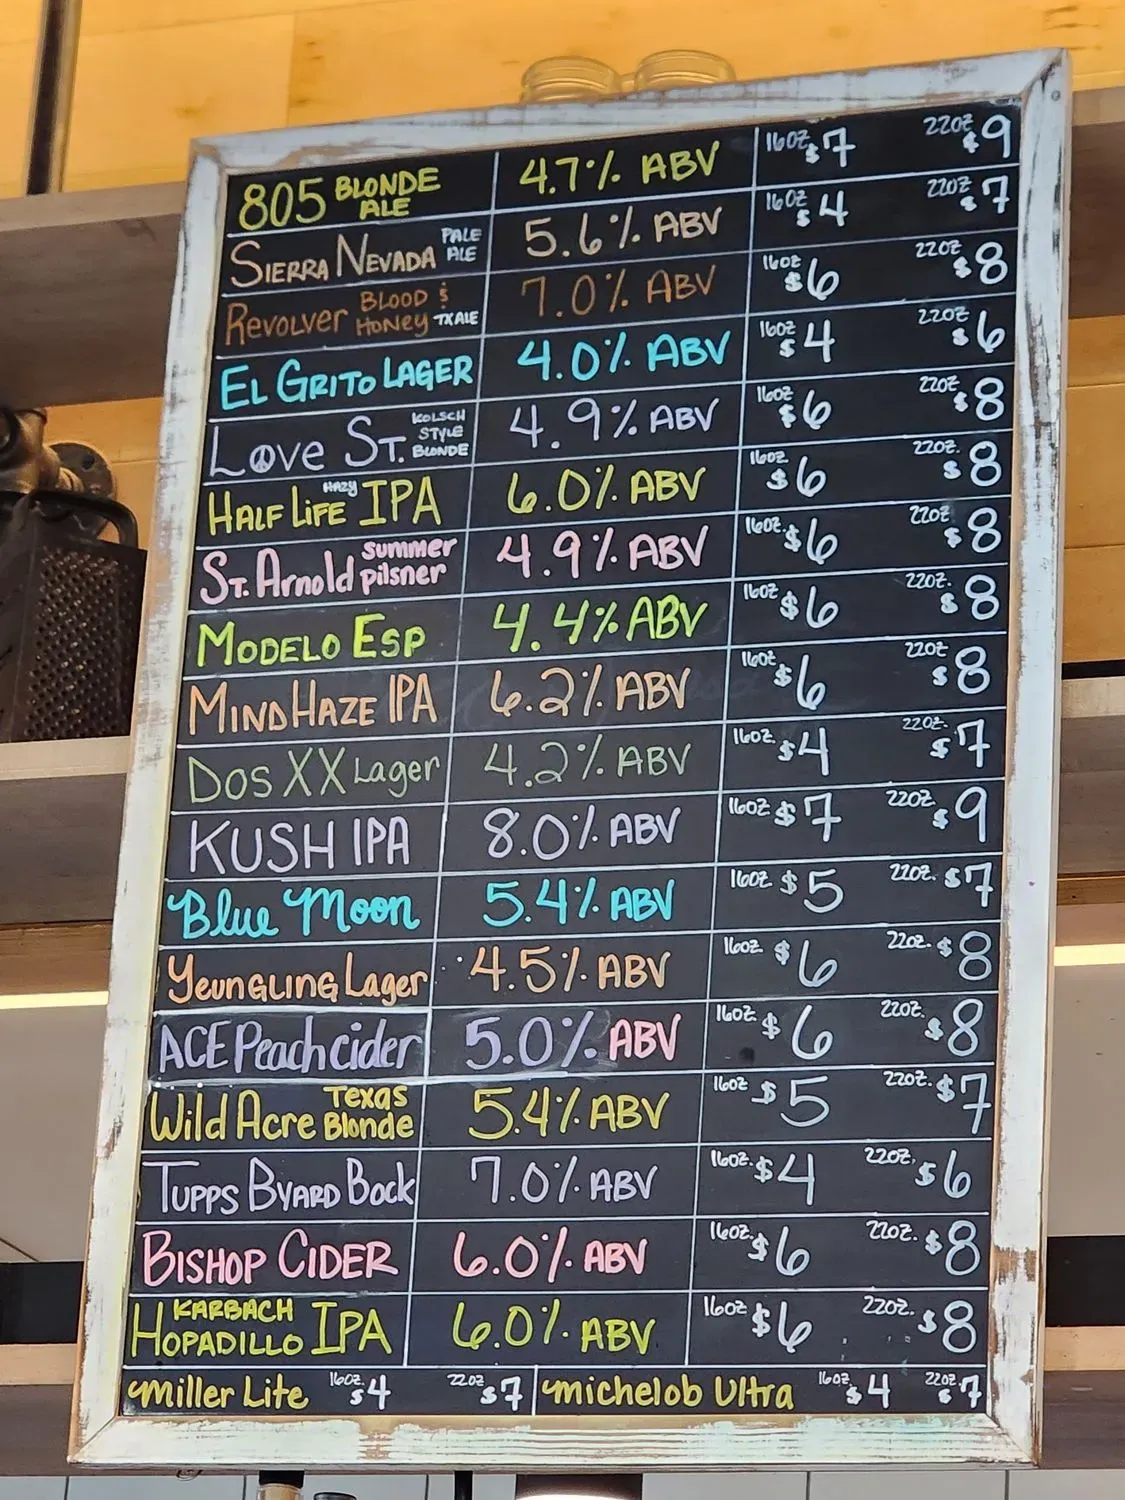 805 BLONDE ALE 4.7% ABV 16OZ $7 22OZ $9
SIERRA NEVADA PALE ALE 5.6% ABV 16OZ $4 22OZ $7
REVOLVER BLOOD & HONEY TX ALE 7.0% ABV 16OZ $6 22OZ $8
EL GRITO LAGER 4.0% ABV 16OZ $4 22OZ $6
LOVE ST. KOLSCH STYLE BLONDE 4.9% ABV 16OZ $6 22OZ $8
HALF LIFE HAZY IPA 6.0% ABV 16OZ $6 22OZ. $8
ST. Arnold summer pilsner 4.9% ABV 16OZ. $6 22OZ $8
MODELO ESP 4.4% ABV 16OZ $6 22OZ. $8
MIND HAZE IPA 6.2% ABV 16OZ $6 22OZ $8
DOS XX Lager 4.2% ABV 16OZ. $4 22OZ. $7
KUSH IPA 8.0% ABV 16OZ $7 22OZ. $9
Blue Moon 5.4% ABV 16OZ. $5 22OZ. $7
YeunGLING Lager 4.5% ABV 16OZ. $6 22OZ. $8
ACE Peach cider 5.0% ABV 16OZ. $6 22OZ. $8
Wild Acre Texas Blonde 5.4% ABV 16OZ $5 22OZ. $7
TUPPS BYARD Bock 7.0% ABV 16OZ. $4 22OZ. $6
BISHOP CIDER 6.0% ABV 16OZ. $6 22OZ. $8
KARBACH HOPADILLO IPA 6.0% ABV 16OZ $6 22OZ. $8
miller Lite 16OZ. $4 22OZ $7 michelob Ultra 16OZ. $4 22OZ $7